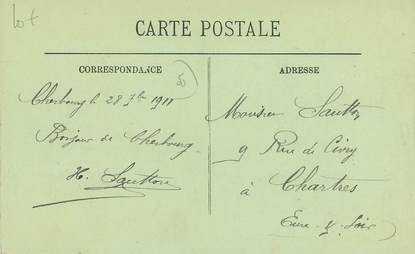 Lot
CARTE POSTALE
CORRESPONDANCE
Cherbourg le 28 7bre 1911
Bonjour de Cherbourg
H. Sautton
ADRESSE
Monsieur Sautton
9 Rue de Civry
à
Chartres
Eure-&-Loir